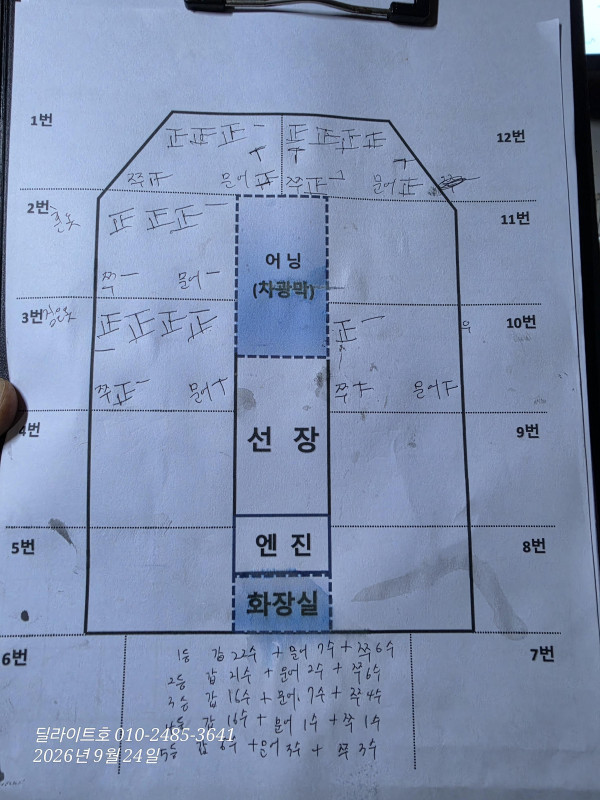 1번
12번
正 正 正 一
正 正 正 正
쭈 正
문어 正
쭈 正
문어 正
2번
11번
正 正 正 一
쭈 一
문어 一
어 닝
(차광막)
3번
10번
正 正 正 正 一
正 一
쭈 正 一
문어 T
쭈 下
문어 下
4번
선 장
9번
5번
엔 진
8번
화장실
6번
7번
1등 갑 22수 + 문어 7수 + 쭈 6수
2등 갑 21수 + 문어 2수 + 쭈 6수
3등 갑 16수 + 문어 7수 + 쭈 4수
4등 갑 16수 + 문어 1수 + 쭈 1수
5등 갑 6수 + 문어 3수 + 쭈 3수
딜라이트호 010-2485-3641
2026년 9월 24일